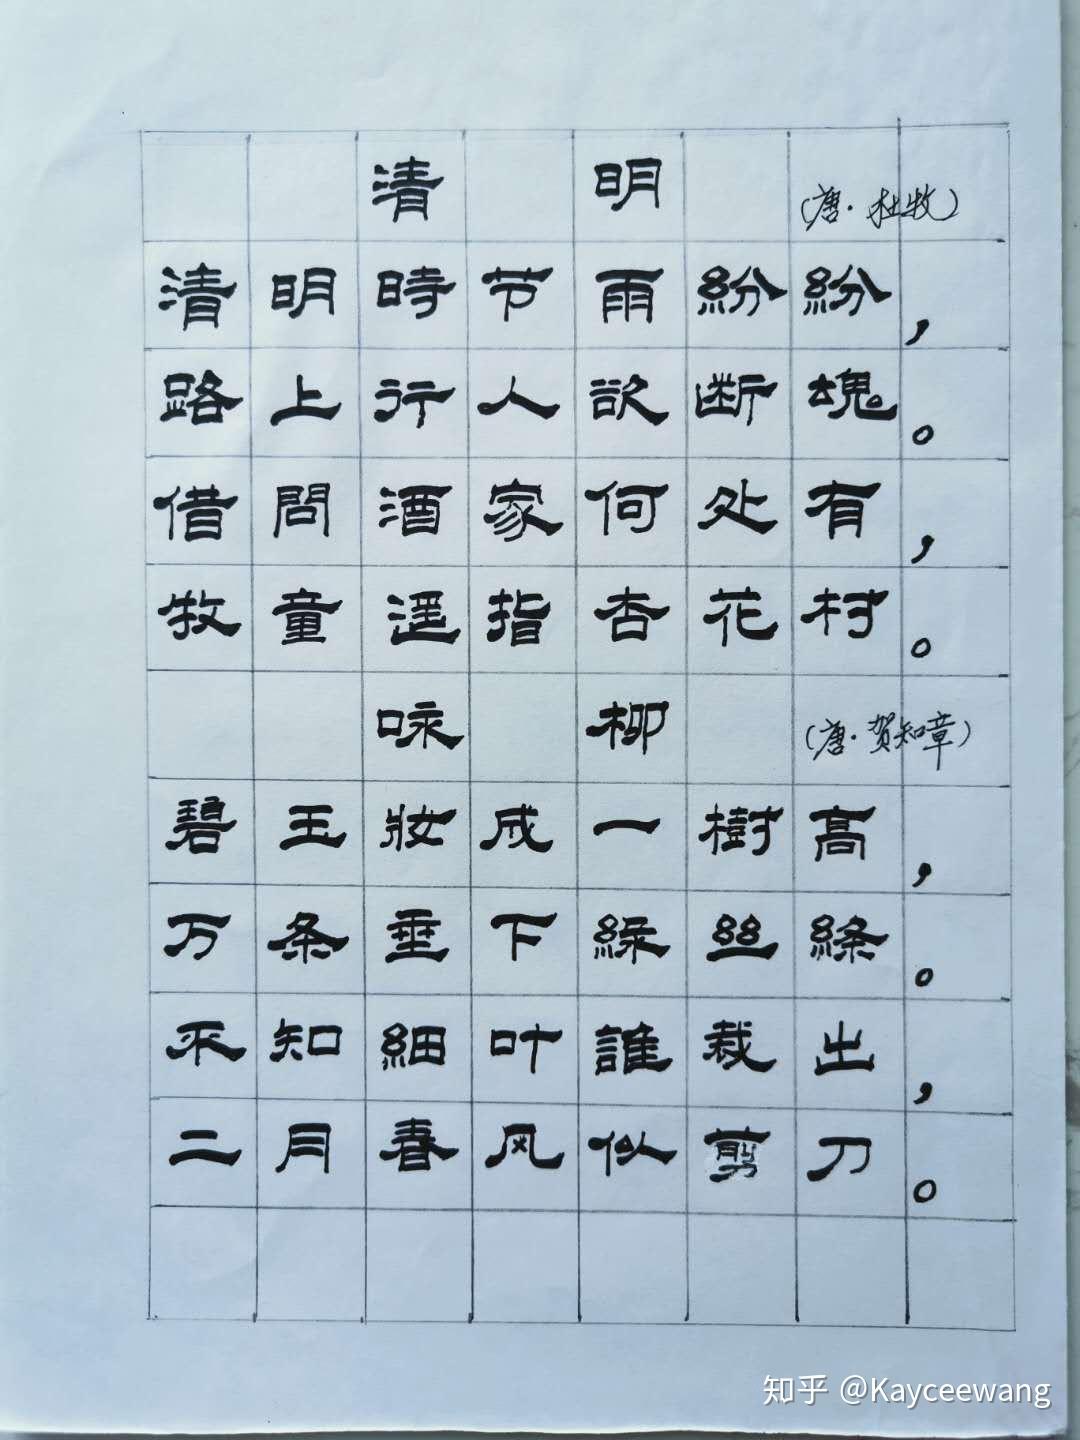 清明 (唐·杜牧)
清明時节雨紛紛，
路上行人欲断魂。
借問酒家何处有，
牧童遥指杏花村。
咏柳 (唐·贺知章)
碧玉妝成一樹髙，
万条垂下緑丝絛。
不知細叶誰裁出，
二月春风似剪刀。
知乎 @Kayceewang